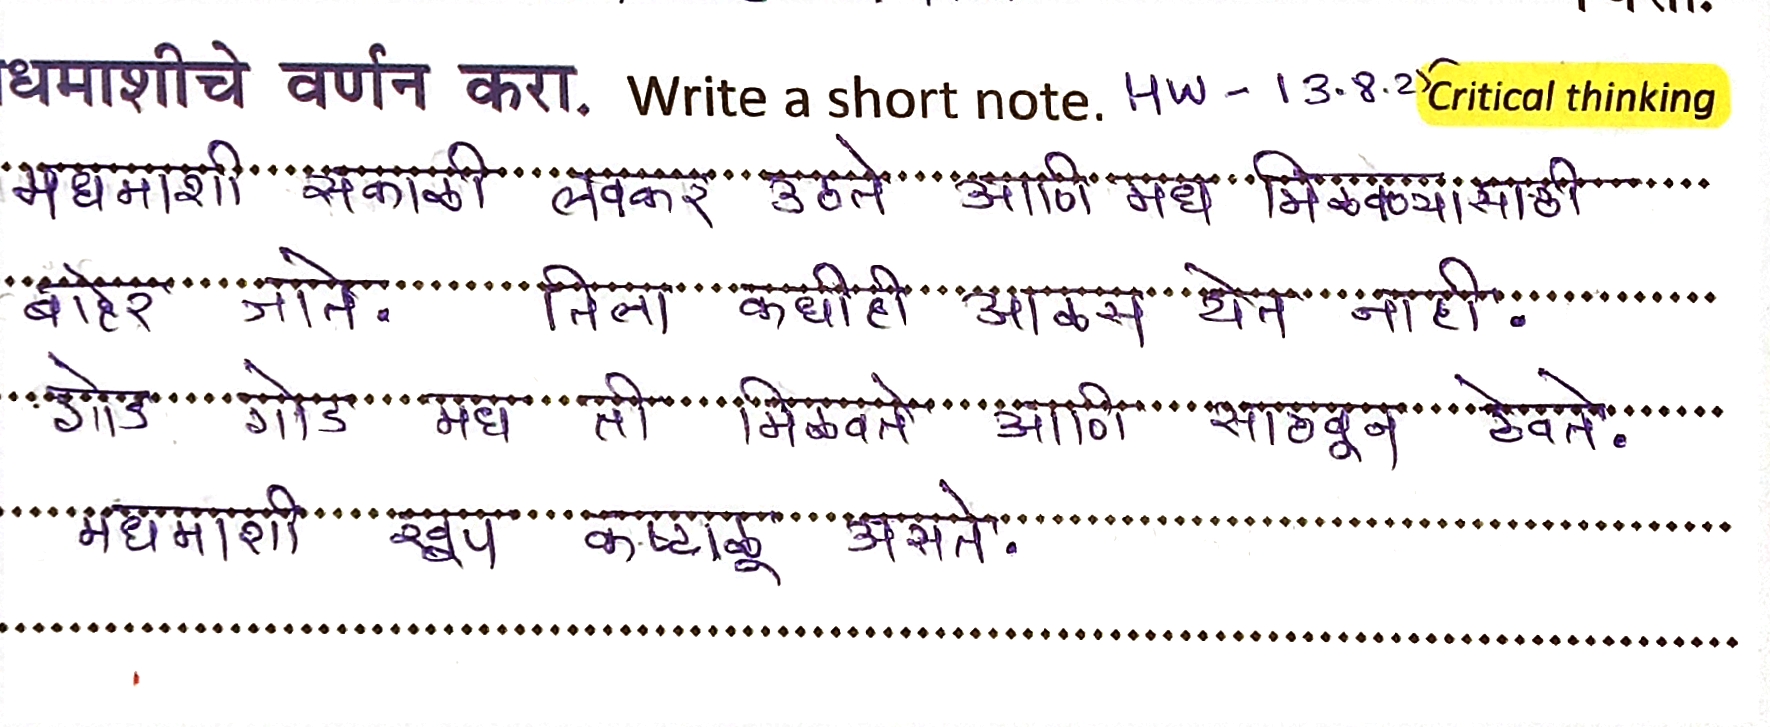 धमाशीचे वर्णन करा. Write a short note. HW - 13.8.2 Critical thinking
मधमाशी सकाळी लवकर उठते आणि मध मिळवण्यासाठी
बाहेर जाते. तिला कधीही आळस येत नाही.
गोड गोड मध ती मिळवते आणि साठवून ठेवते.
मधमाशी खूप कष्टाळू असते.